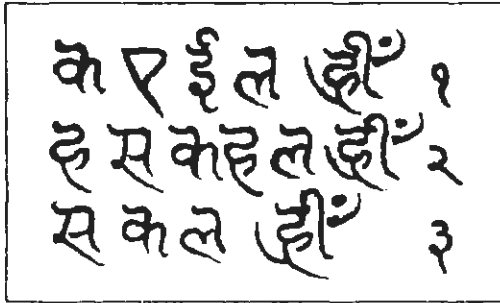 क ए ई ल ह्रीँ १
ह स क ह ल ह्रीँ २
स क ल ह्रीँ ३